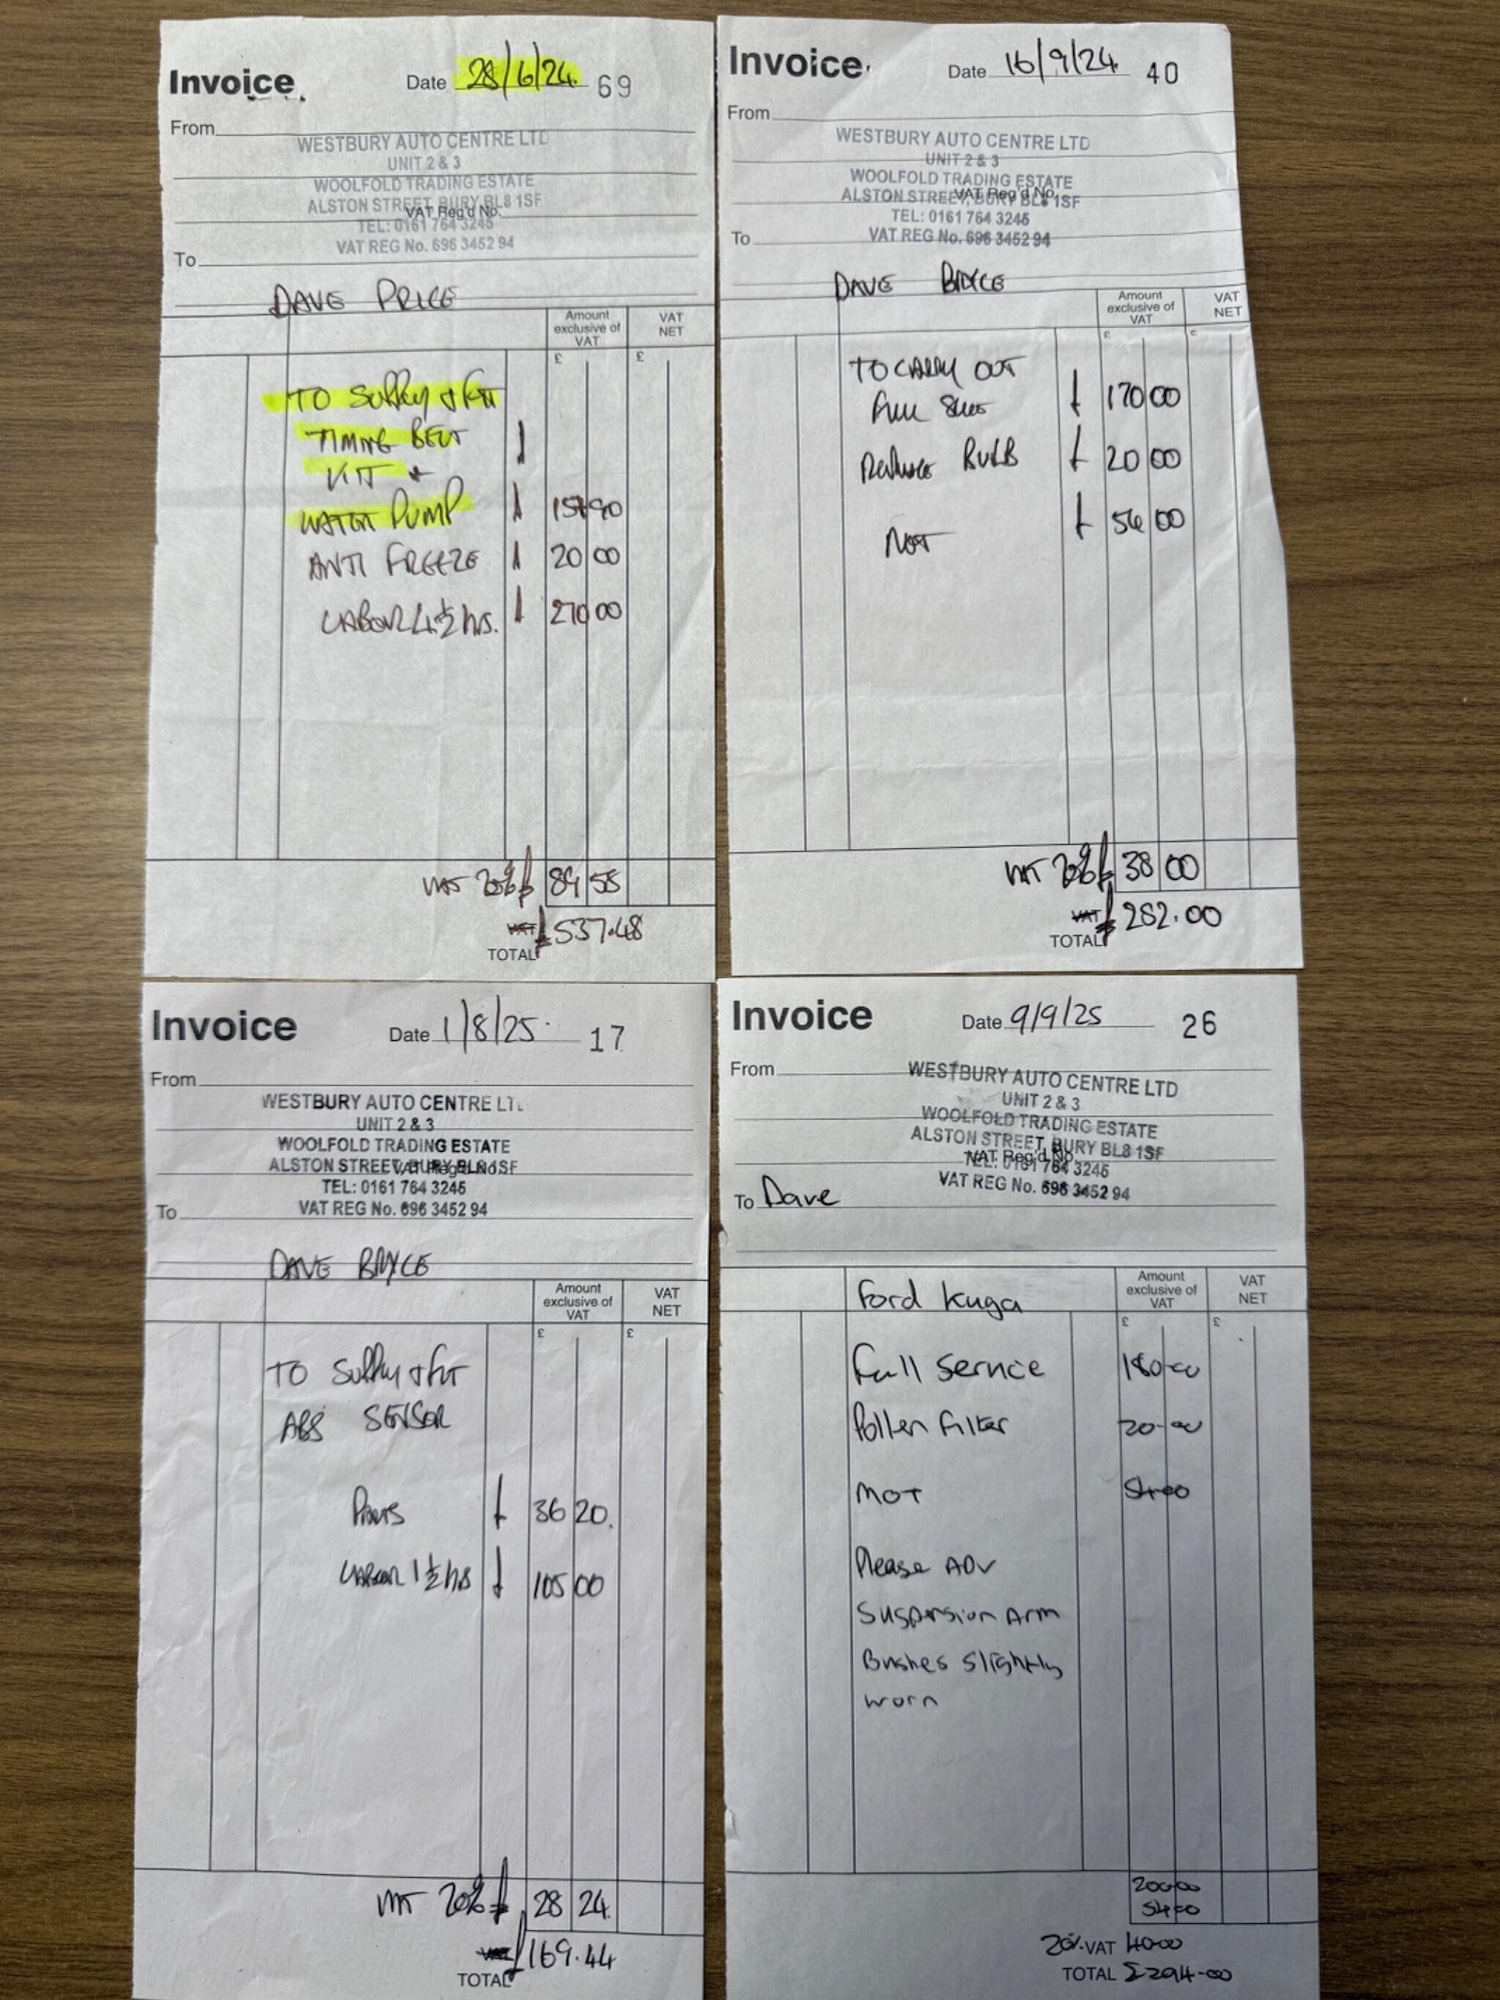 Invoice
Date 28/6/24 69
From
WESTBURY AUTO CENTRE LTD
UNIT 2 & 3
WOOLFOLD TRADING ESTATE
ALSTON STREET, BURY BL8 1SF
VAT Reg'd No.
TEL: 0161 764 3245
VAT REG No. 696 3452 94
To
DAVE PRICE
Amount exclusive of VAT
VAT NET
£ £
TO SUPPLY & FIT
TIMING BELT
KIT +
WATER PUMP 157 90
ANTI FREEZE 20 00
LABOUR 4½ hrs. 270 00
VAT 20% £ 89 58
VAT £537.48
TOTAL
Invoice
Date 16/9/24 40
From
WESTBURY AUTO CENTRE LTD
UNIT 2 & 3
WOOLFOLD TRADING ESTATE
ALSTON STREET, BURY BL8 1SF
VAT Reg'd No.
TEL: 0161 764 3245
VAT REG No. 696 3452 94
To
DAVE BRYCE
Amount exclusive of VAT
VAT NET
£ £
TO CARRY OUT
FULL £ 170 00
BULB £ 20 00
MOT £ 54 00
VAT 20% £ 38 00
VAT £282.00
TOTAL
Invoice
Date 1/8/25. 17
From
WESTBURY AUTO CENTRE LT
UNIT 2 & 3
WOOLFOLD TRADING ESTATE
ALSTON STREET, BURY BL8 1SF
VAT Reg'd No.
TEL: 0161 764 3245
VAT REG No. 696 3452 94
To
DAVE BRYCE
Amount exclusive of VAT
VAT NET
£ £
TO SUPPLY & FIT
ABS SENSOR
PARTS £ 36 20.
LABOUR 1½ hrs £ 105 00
VAT 20% £ 28 24
VAT £169.44
TOTAL
Invoice
Date 9/9/25 26
From
WESTBURY AUTO CENTRE LTD
UNIT 2 & 3
WOOLFOLD TRADING ESTATE
ALSTON STREET, BURY BL8 1SF
VAT Reg'd No.
TEL: 0161 764 3245
VAT REG No. 696 3452 94
To Dave
Ford Kuga
Amount exclusive of VAT
VAT NET
£ £
Full Service 180-00
Pollen Filter 20-00
MOT 54-00
Please ADV
Suspension Arm
Bushes Slightly
worn
200-00
54-00
20% VAT 40-00
TOTAL £294-00